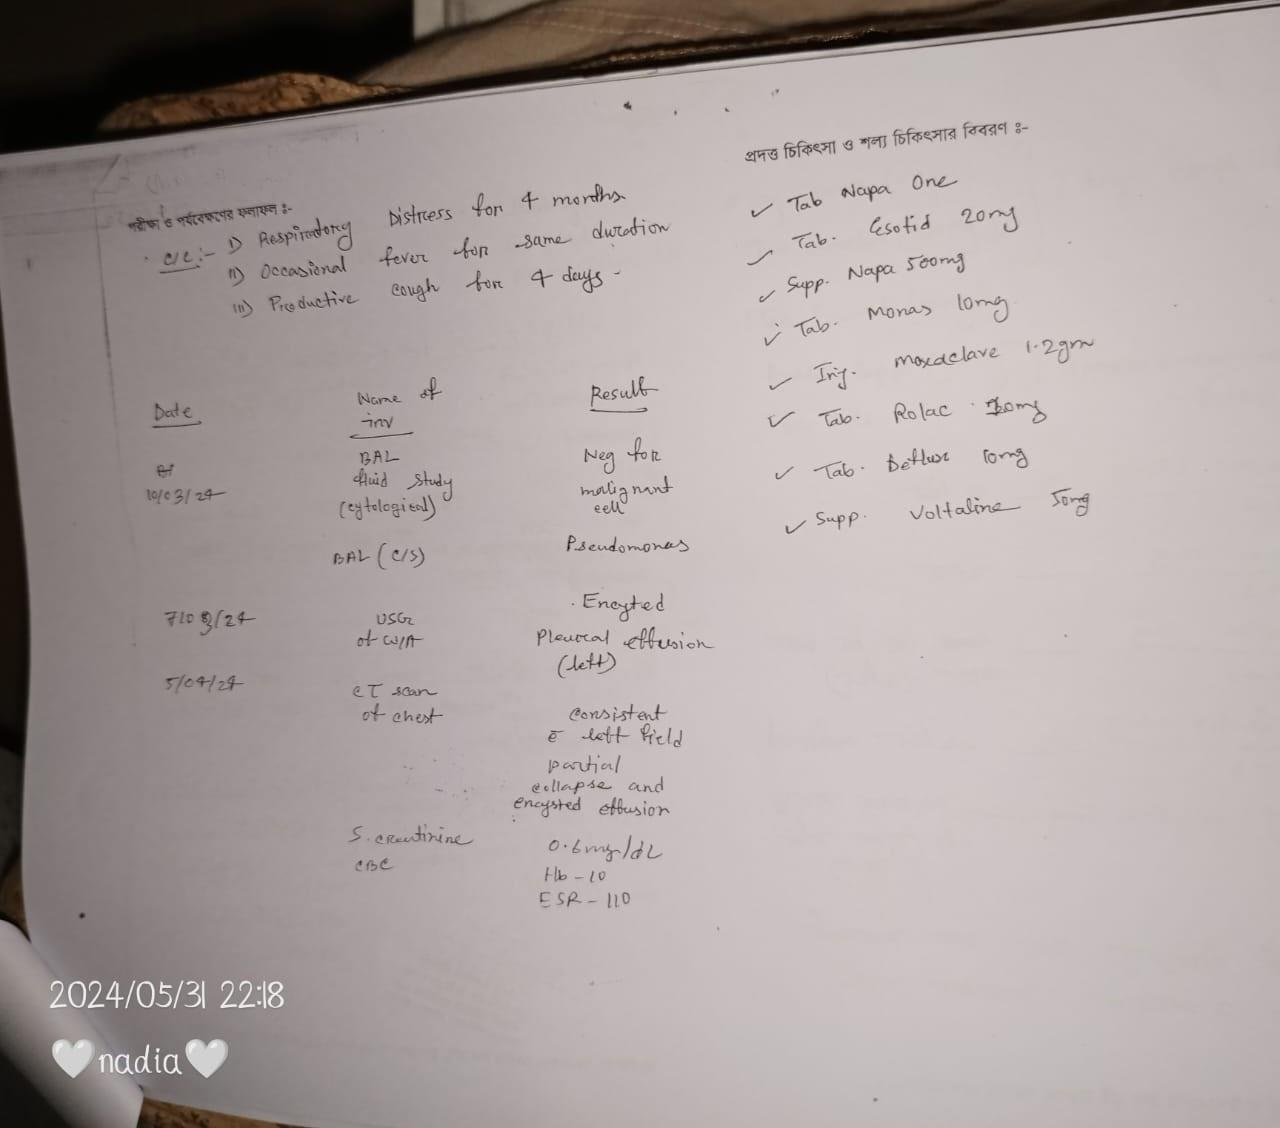 পরীক্ষা ও পর্যবেক্ষণের ফলাফল :-
c/c:- i) Respiratory Distress for 4 months.
ii) Occasional fever for same duration
iii) Productive cough for 4 days -
Date
Name of inv
Result
10/03/24
BAL fluid study (cytological)
Neg for malignant cell
BAL (c/s)
Pseudomonas
7/03/24
USG of W/A
Encyted Pleural effusion (left)
5/04/24
CT scan of chest
consistent c̄ left field partial collapse and encysted effusion
S. creatinine
0.6 mg/dL
CBC
Hb - 10
ESR - 110
প্রদত্ত চিকিৎসা ও শল্য চিকিৎসার বিবরণ :-
✓ Tab Napa One
✓ Tab. Esotid 20mg
✓ Supp. Napa 500mg
✓ Tab. Monas 10mg
✓ Inj. moxaclave 1.2gm
✓ Tab. Rolac 10mg
✓ Tab. Deflux 10mg
✓ Supp. Voltaline 50mg
2024/05/31 22:18
🤍nadia🤍